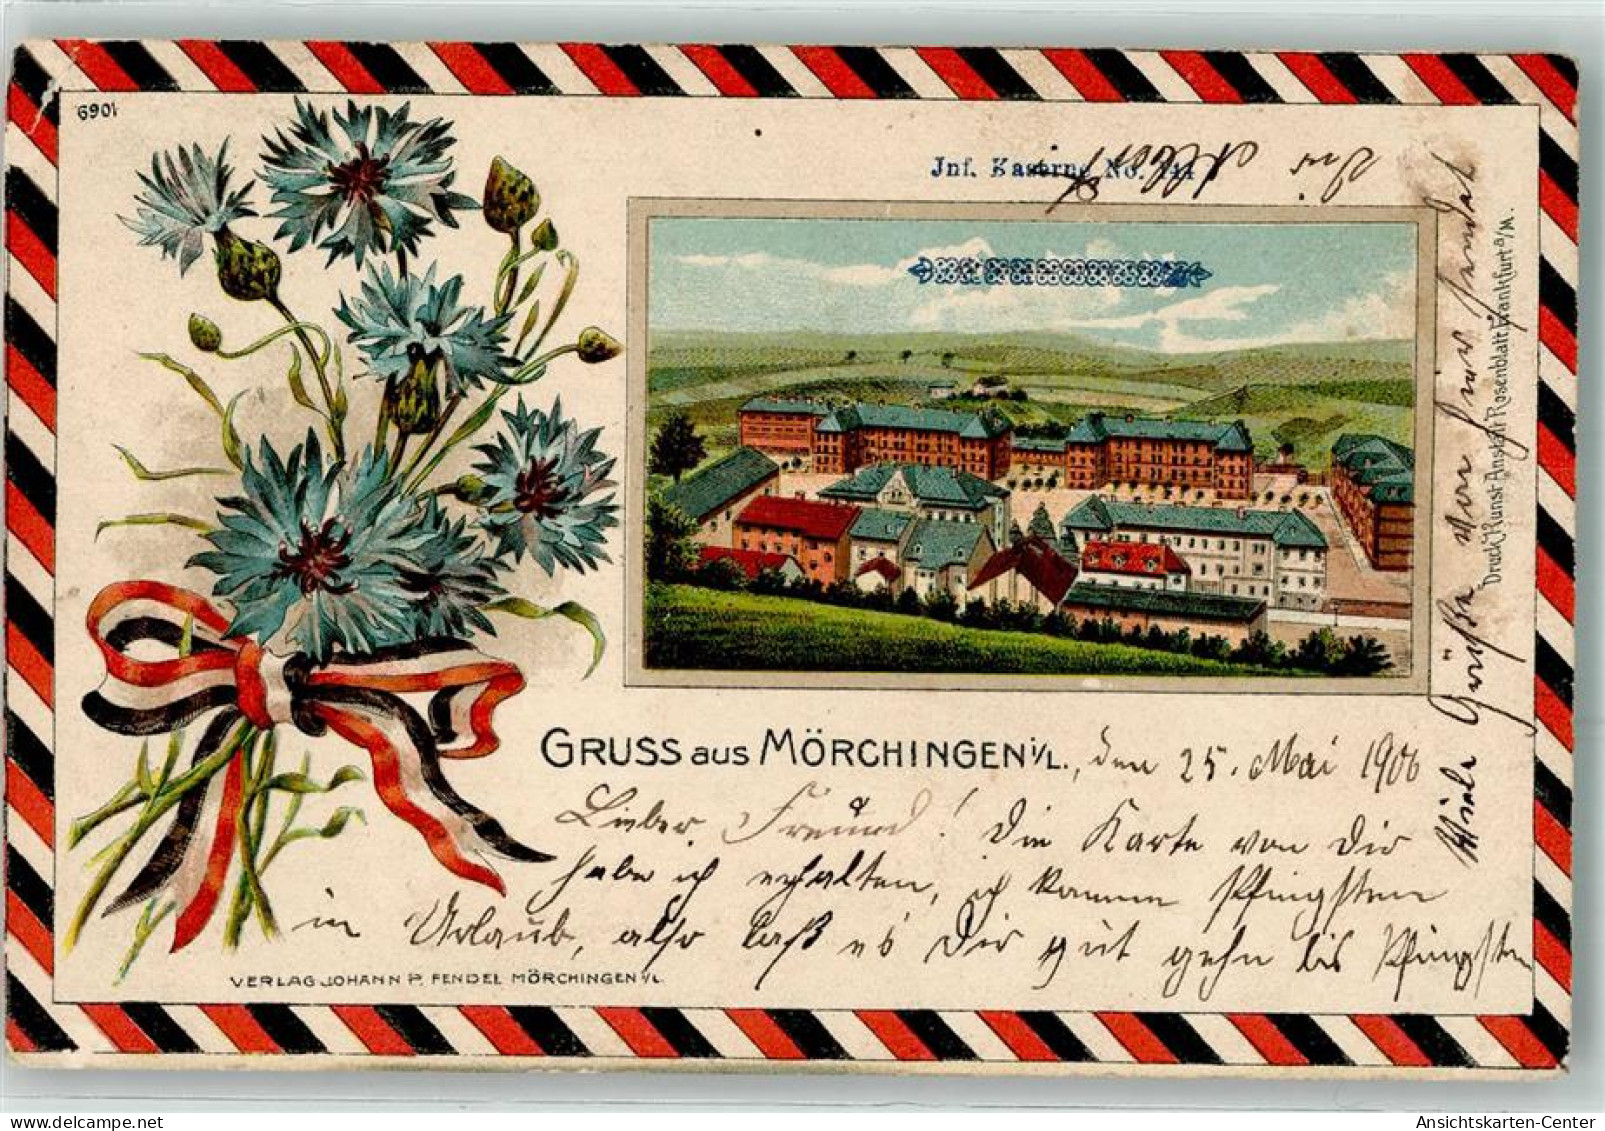 6901
Jnf. Kaserne No. 144
Dein
Viele Grüße von hier sendet
Druck v. Kunst Anstalt Rosenblatt, Frankfurt a/M.
GRUSS aus MÖRCHINGEN i/L., den 25. Mai 1900
Lieber Freund! Die Karte von Dir
habe ich erhalten, ich komme Pfingsten
in Urlaub, also laß es Dir gut gehn bis Pfingsten
VERLAG JOHANN P. FENDEL MÖRCHINGEN i/L.
Ansichtskarten-Center